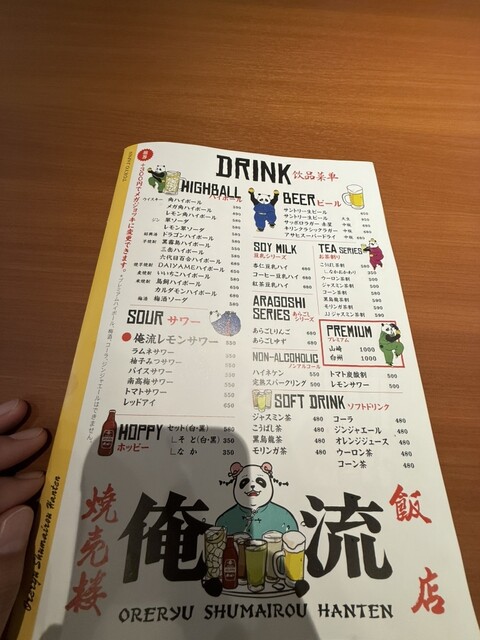 DRINK 飲品菜単
+300円でメガジョッキに変更できます。
HIGHBALL ハイボール
ウイスキー 角ハイボール
メガ角ハイボール
レモン角ハイボール
ジン 翠ソーダ
レモン翠ソーダ
紹興酒 ドラゴンハイボール
芋焼酎 黒霧島ハイボール
三岳ハイボール
六代目百合ハイボール
DAIYAMEハイボール
麦焼酎 いいちこハイボール
鳥飼ハイボール
カルダモンハイボール
梅酒 梅酒ソーダ
SOUR サワー
俺流レモンサワー
ラムネサワー
柚子みつサワー
バイスサワー
南高梅サワー
トマトサワー
レッドアイ
HOPPY ホッピー
セット(白・黒) 550
∟そと(白・黒) 350
∟なか 350
BEER ビール
サントリー生ビール
サントリー生ビール 大瓶
サッポロラガー 赤星 中瓶
キリンクラシックラガー 中瓶
アサヒスーパードライ 中瓶
SOY MILK
豆乳シリーズ
杏仁豆乳ハイ
コーヒー豆乳ハイ
紅茶豆乳ハイ
TEA SERIES
お茶割り
こうばし茶割
∟なかおかわり
ウーロン茶割
ジャスミン茶割
コーン茶割
黒烏龍茶割
モリンガ茶割
JJジャスミン茶割
ARAGOSHI SERIES あらごしシリーズ
あらごしりんご
あらごしゆず
PREMIUM
プレミアム
山崎 1000
白州 1000
NON-ALCOHOLIC
ノンアルコール
ハイネケン 550
完熟スパークリング 500
トマト炭酸割 550
レモンサワー 500
SOFT DRINK ソフトドリンク
ジャスミン茶 480
こうばし茶 480
黒烏龍茶 480
モリンガ茶 480
コーラ 480
ジンジャエール 480
オレンジジュース 480
ウーロン茶 480
コーン茶 480
焼売楼
俺流
飯店
ORERYU SHUMAIROU HANTEN
Oreryu Shumairou Hanten